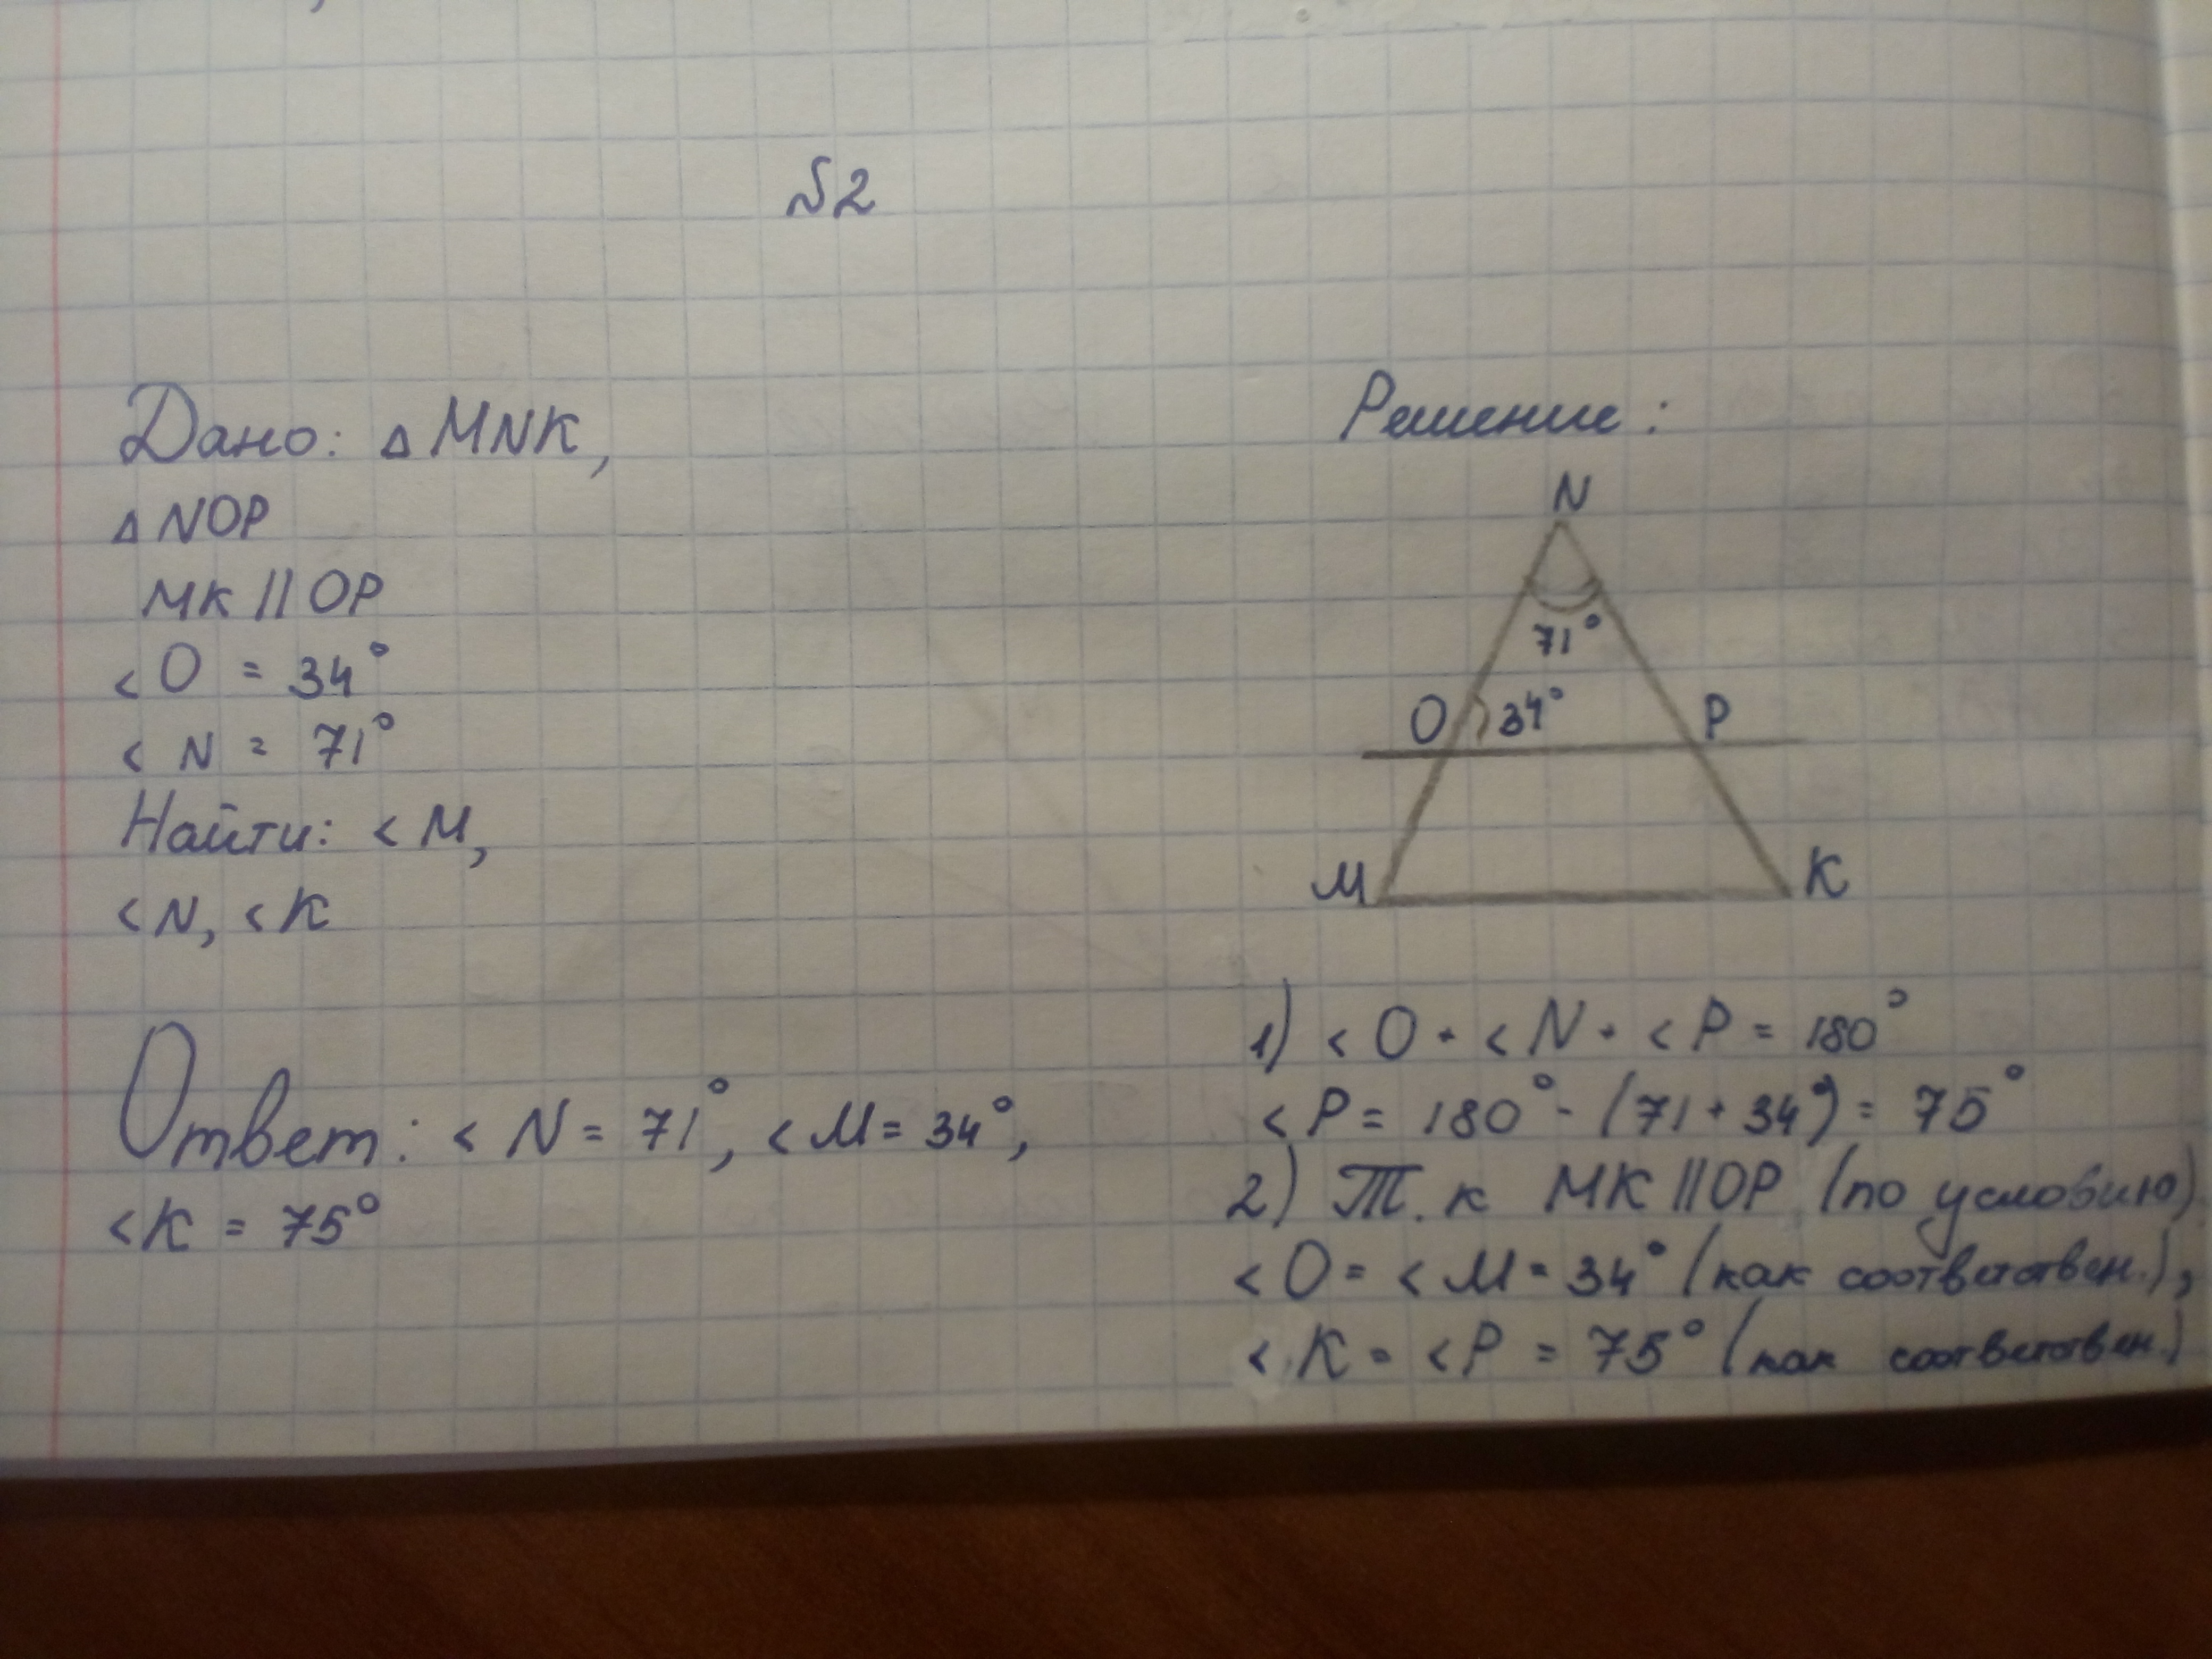 №2
Дано: △MNK,
△NOP
MK || OP
<O = 34°
<N = 71°
Найти: <M,
<N, <K
Ответ: <N = 71°, <M = 34°,
<K = 75°
Решение:
N
71°
O 34° P
M K
1) <O + <N + <P = 180°
<P = 180° - (71 + 34°) = 75°
2) Т.к MK || OP (по условию)
<O = <M = 34° (как соответствен.),
<K = <P = 75° (как соответствен.)